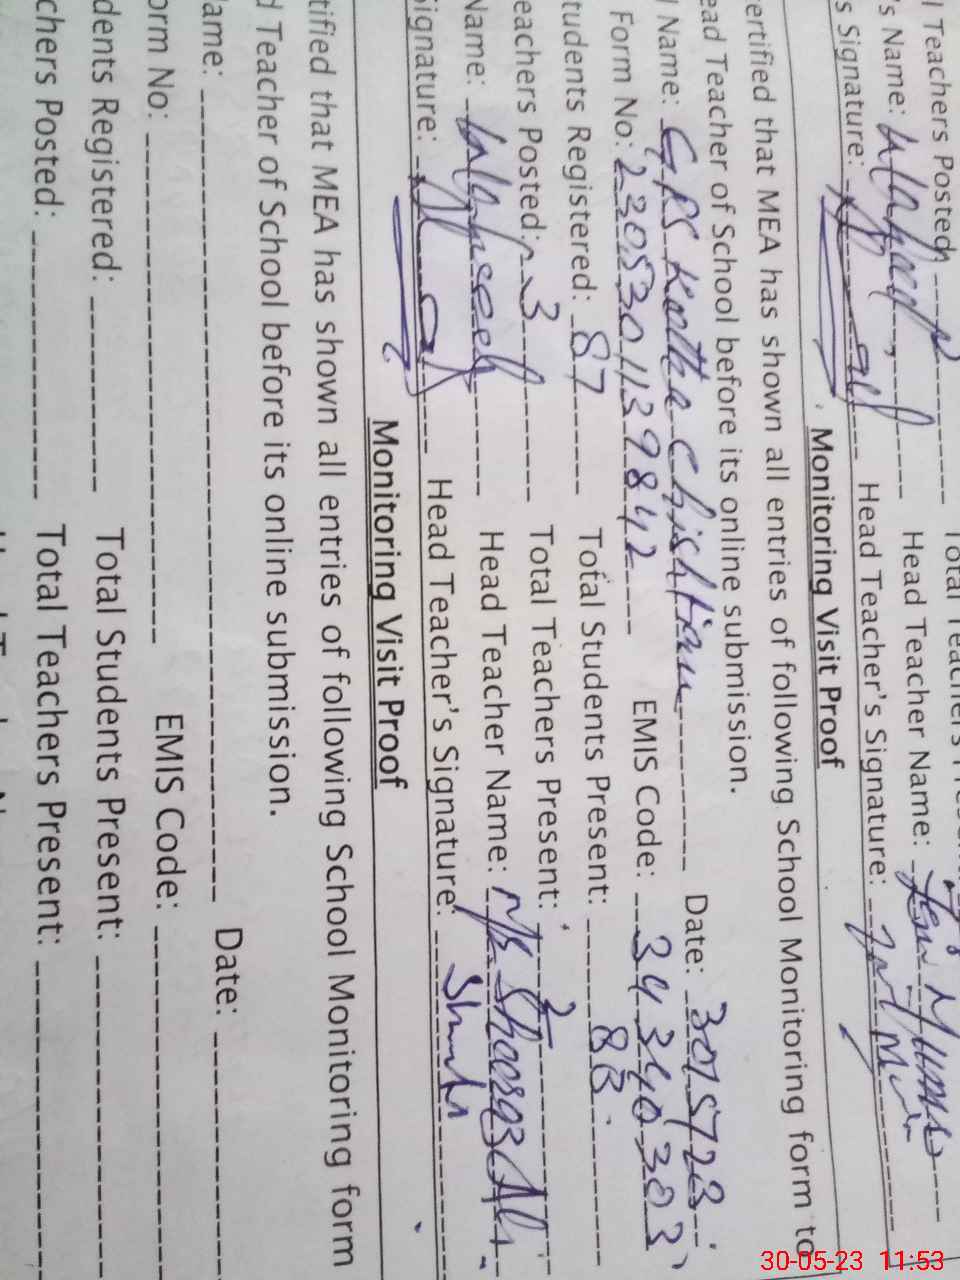 l Teachers Posted Total Teachers
's Name: Head Teacher Name:
s Signature: Head Teacher's Signature:
Monitoring Visit Proof
ertified that MEA has shown all entries of following School Monitoring form to
ead Teacher of School before its online submission.
l Name: GPS Kotta Chishtian Date: 30/5/23
Form No: 2305301139842 EMIS Code: 34340303
tudents Registered: 87 Total Students Present: 83
eachers Posted: 3 Total Teachers Present: 2
Name: Head Teacher Name:
Signature: Head Teacher's Signature:
Monitoring Visit Proof
tified that MEA has shown all entries of following School Monitoring form
d Teacher of School before its online submission.
ame: Date:
orm No: EMIS Code:
dents Registered: Total Students Present:
chers Posted: Total Teachers Present:
30-05-23 11:53